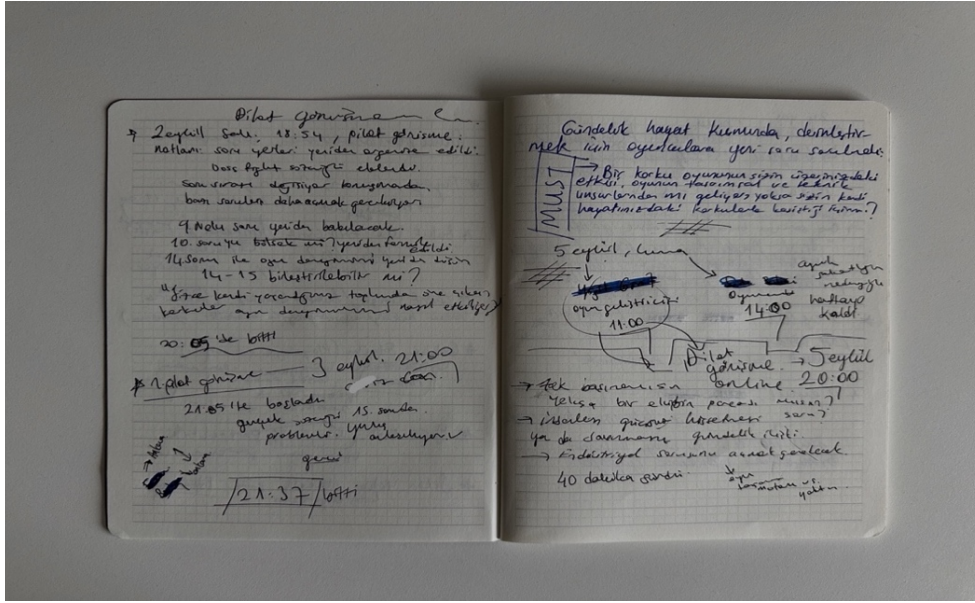 Pilot görüşme
2 eylül Salı. 18:54, pilot görüşme.
notları: soru yerleri yeniden organize edildi.
boss fight sözcüğü eklendi
Soru sırası değişiyor konuşmada.
bazı soruları daha açmak gerekiyor
9 Nolu soru yeniden bakılacak.
10. soruyu bölsek mi? yeniden edildi
14. soru ile oyun deneyimini yeniden düşün
14-15 birleştirilebilir mi?
Sizce kendi yaşadığınız toplumda öne çıkan
korkular oyun deneyiminizi nasıl etkiliyor?
20:05'de bitti
2. pilot görüşme
3 eylül. 21:00
21.05'de başladı
gerçek 15. soruda
problemli.
21:37 bitti
Gündelik hayat kısmında, derinleştir-
mek için oyunculara yeni soru soruldu.
MUST
→ Bir korku oyununun sizin üzerinizdeki
etkisi, oyunun tasarımsal ve teknik
unsurlarından mı geliyor yoksa sizin kendi
hayatınızdaki korkularla kesiştiği için mi?
5 eylül, cuma
oyun geliştirici
11:00
Oyuncu
14:00
nedeniyle
haftaya
kaldı
Pilat
görüşme
online
→ 5 eylül
20:00
→ Tek başına mısın
yoksa bir ekibin parçası mısın?
güçsüz hissetmesi soru?
ya da savunmasız gündelik
→ Endüstriyel sorusunu açmak gerekecek
40 dakika sürdü.
oyun